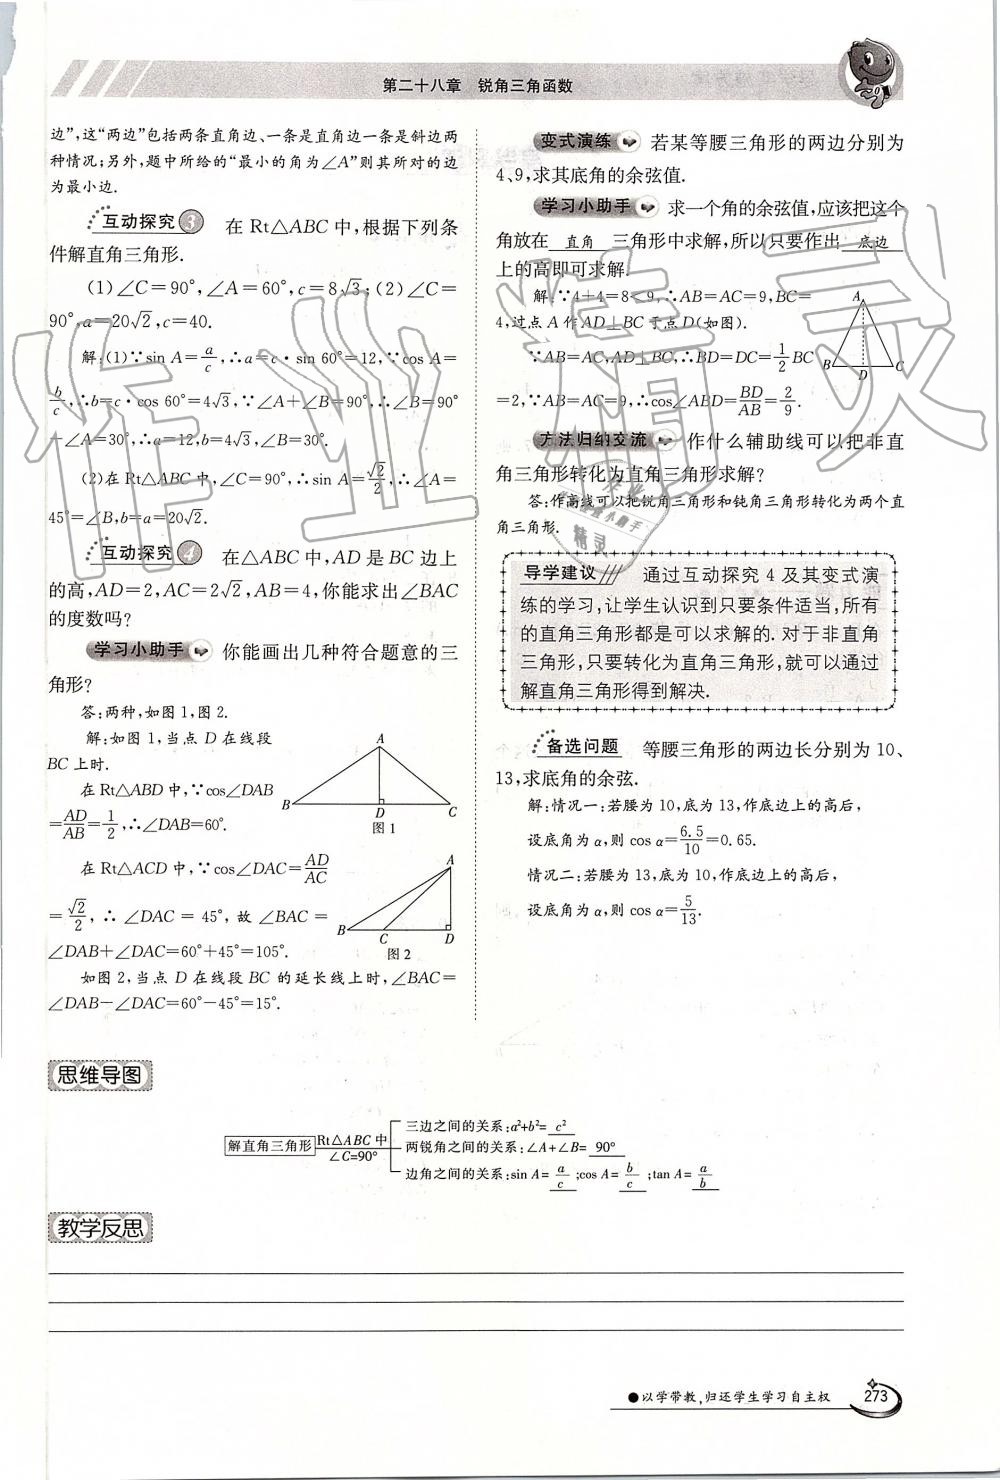 第二十八章 锐角三角函数
边”,这“两边”包括两条直角边、一条是直角边一条是斜边两
种情况;另外,题中所给的“最小的角为∠A”则其所对的边
为最小边.
互动探究3 在 Rt△ABC 中,根据下列条
件解直角三角形.
(1)∠C=90°,∠A=60°,c=8√3;(2)∠C=
90°,a=20√2,c=40.
解:(1)∵sin A=a/c,∴a=c·sin 60°=12,∵cos A=
b/c,∴b=c·cos 60°=4√3,∵∠A+∠B=90°,∴∠B=90°
-∠A=30°,∴a=12,b=4√3,∠B=30°.
(2)在 Rt△ABC 中,∠C=90°,∴sin A=√2/2,∴∠A=
45°=∠B,b=a=20√2.
互动探究4 在△ABC 中,AD 是 BC 边上
的高,AD=2,AC=2√2,AB=4,你能求出∠BAC
的度数吗?
学习小助手 你能画出几种符合题意的三
角形?
答:两种,如图1,图2.
解:如图1,当点 D 在线段
BC 上时.
在 Rt△ABD 中,∵cos∠DAB
=AD/AB=1/2,∴∠DAB=60°.
A
B D C
图1
在 Rt△ACD 中,∵cos∠DAC=AD/AC
=√2/2,∴∠DAC=45°,故∠BAC=
∠DAB+∠DAC=60°+45°=105°.
A
B C D
图2
如图2,当点 D 在线段 BC 的延长线上时,∠BAC=
∠DAB-∠DAC=60°-45°=15°.
变式演练 若某等腰三角形的两边分别为
4、9,求其底角的余弦值.
学习小助手 求一个角的余弦值,应该把这个
角放在 直角 三角形中求解,所以只要作出 底边
上的高即可求解.
解:∵4+4=8<9,∴AB=AC=9,BC=
4,过点 A 作 AD⊥BC 于点 D(如图).
∵AB=AC,AD⊥BC,∴BD=DC=1/2BC
=2,∵AB=AC=9,∴cos∠ABD=BD/AB=2/9.
A
B D C
方法归纳交流 作什么辅助线可以把非直
角三角形转化为直角三角形求解?
答:作高线可以把锐角三角形和钝角三角形转化为两个直
角三角形.
导学建议 通过互动探究 4 及其变式演
练的学习,让学生认识到只要条件适当,所有
的直角三角形都是可以求解的. 对于非直角
三角形,只要转化为直角三角形,就可以通过
解直角三角形得到解决.
备选问题 等腰三角形的两边长分别为 10、
13,求底角的余弦.
解:情况一:若腰为 10,底为 13,作底边上的高后,
设底角为α,则 cos α=6.5/10=0.65.
情况二:若腰为 13,底为 10,作底边上的高后,
设底角为α,则 cos α=5/13.
思维导图
解直角三角形 Rt△ABC 中 ∠C=90°
三边之间的关系:a²+b²= c²
两锐角之间的关系:∠A+∠B= 90°
边角之间的关系:sin A= a/c ;cos A= b/c ;tan A= a/b
教学反思
●以学带教,归还学生学习自主权
273
作业精灵